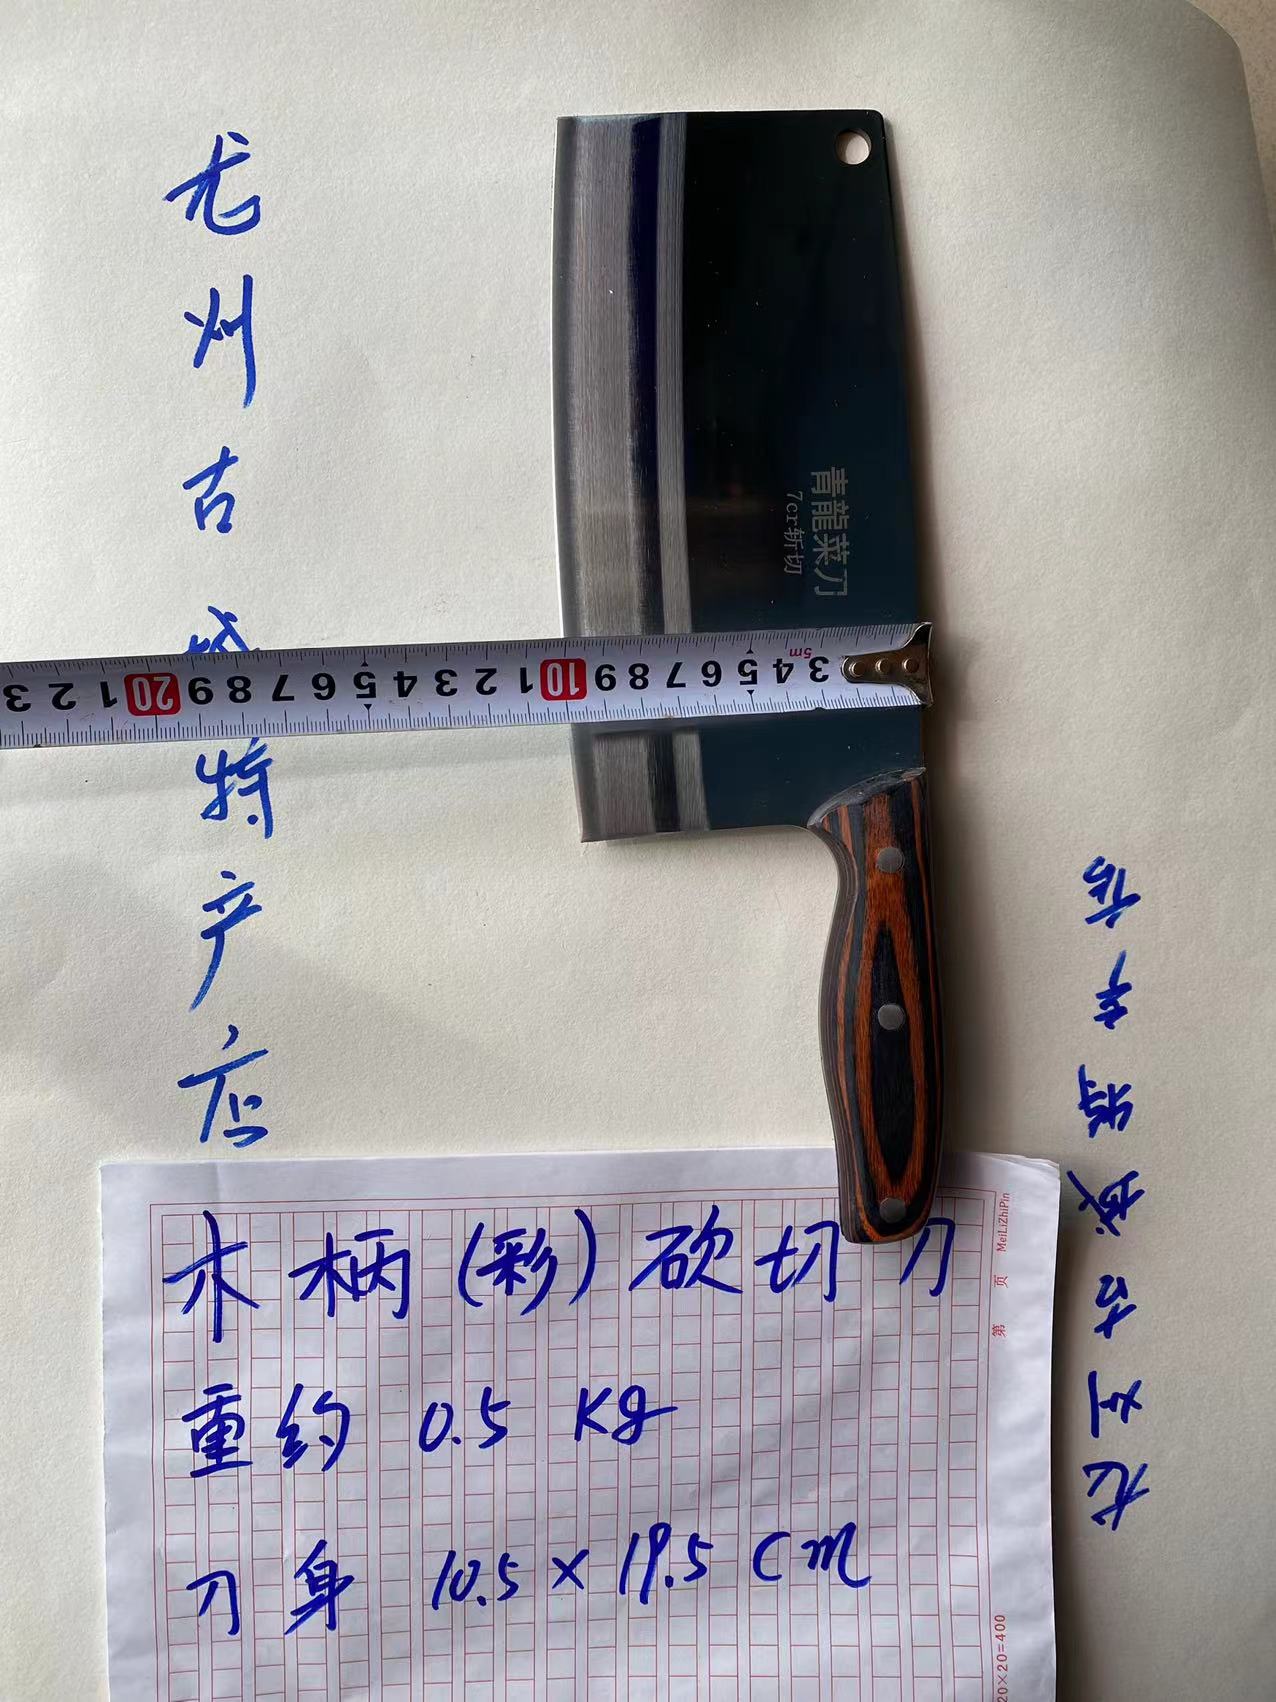 尤州古城特产店
青龍菜刀
7cr斩切
5m
3 4 5 6 7 8 9 10 1 2 3 4 5 6 7 8 9 20 1 2 3
木柄(彩)砍切刀
重约 0.5 Kg
刀身 10.5×19.5 cm
第 页 MeiLiZhiPin
20×20=400